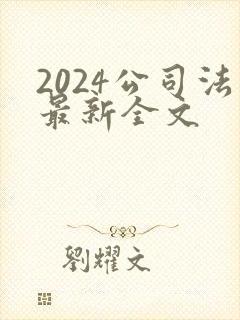 2024公司法
最新全文
劉耀文